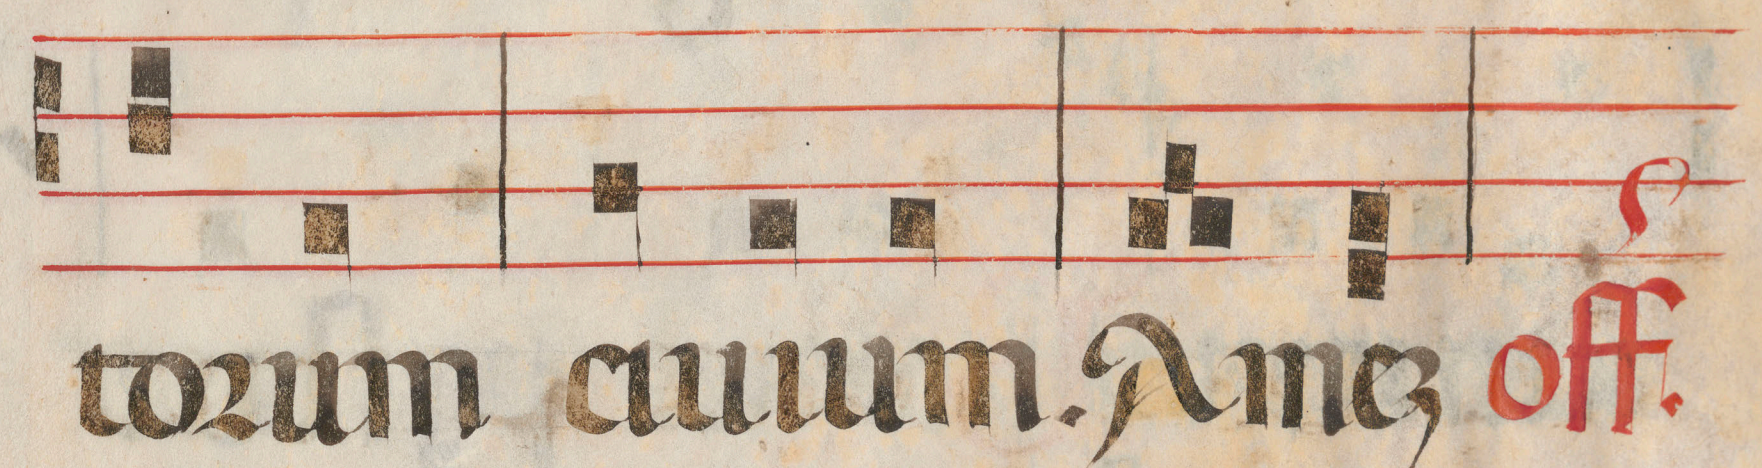 torum ciuium. Ameꝫ off.